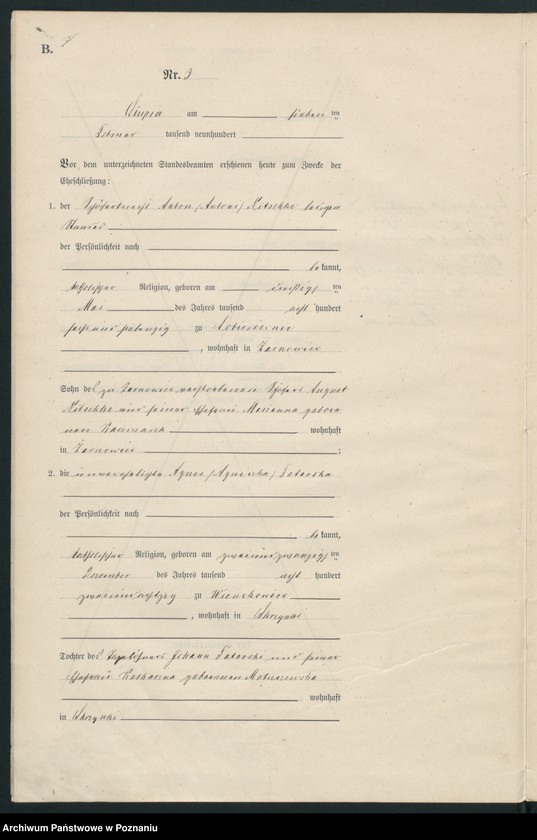 B. 7
Nr. 3
am siebenten
Februar tausend neunhundert
Vor dem unterzeichneten Standesbeamten erschienen heute zum Zwecke der
Eheschließung:
1. der Anton /Antoni/ Nitschke
der Persönlichkeit nach
bekannt,
katholischer Religion, geboren am dreißigsten
Mai des Jahres tausend acht hundert
sechs und siebenzig zu
, wohnhaft in Tarnowiec
Sohn des zu Tarnowiec verstorbenen August
Nitschke und seiner Ehefrau Marianna gebore-
nen wohnhaft
in Tarnowiec ;
2. die unverehelichte Agnes /Agnieszka/ Tatarska
der Persönlichkeit nach
bekannt,
katholischer Religion, geboren am zweiundzwanzigsten
Dezember des Jahres tausend acht hundert
zweiundachtzig zu
, wohnhaft in
Tochter des Johann Tatarski und seiner
Ehefrau Katharina geborenen Matuszewska
wohnhaft
in
Archiwum Państwowe w Poznaniu